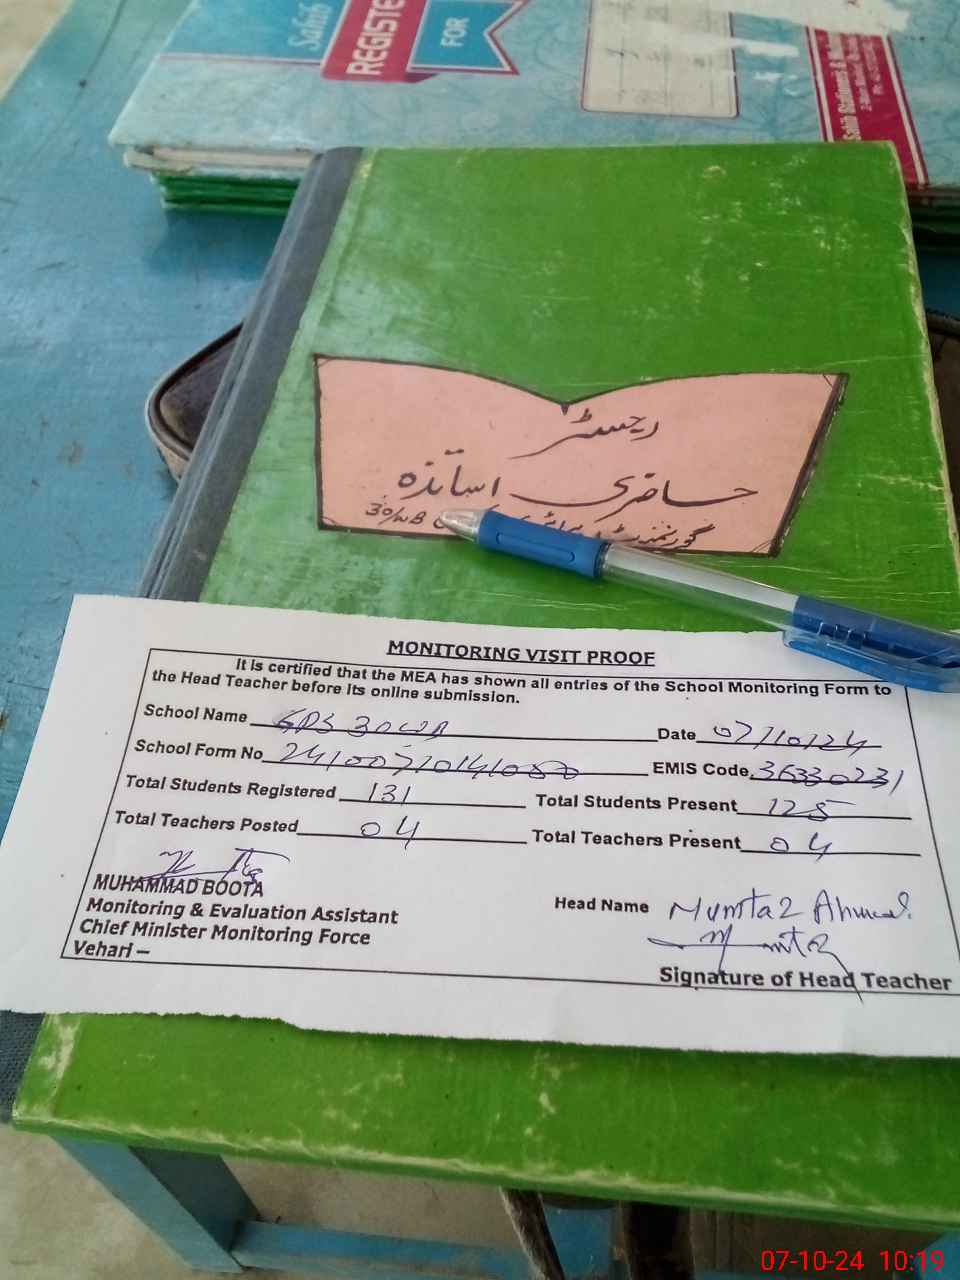 Sahib
REGISTE
FOR
Sahib Stationers &
ریجسٹر
حاضری اساتذہ
گورنمنٹ 30/WB
MONITORING VISIT PROOF
It is certified that the MEA has shown all entries of the School Monitoring Form to
the Head Teacher before its online submission.
School Name GPS 30 WB Date 07/10/24
School Form No EMIS Code 36330231
Total Students Registered 131 Total Students Present 125
Total Teachers Posted 04 Total Teachers Present 04
MUHAMMAD BOOTA
Monitoring & Evaluation Assistant
Chief Minister Monitoring Force
Vehari –
Head Name Mumtaz Ahmad.
Mumtaz
Signature of Head Teacher
07-10-24 10:19